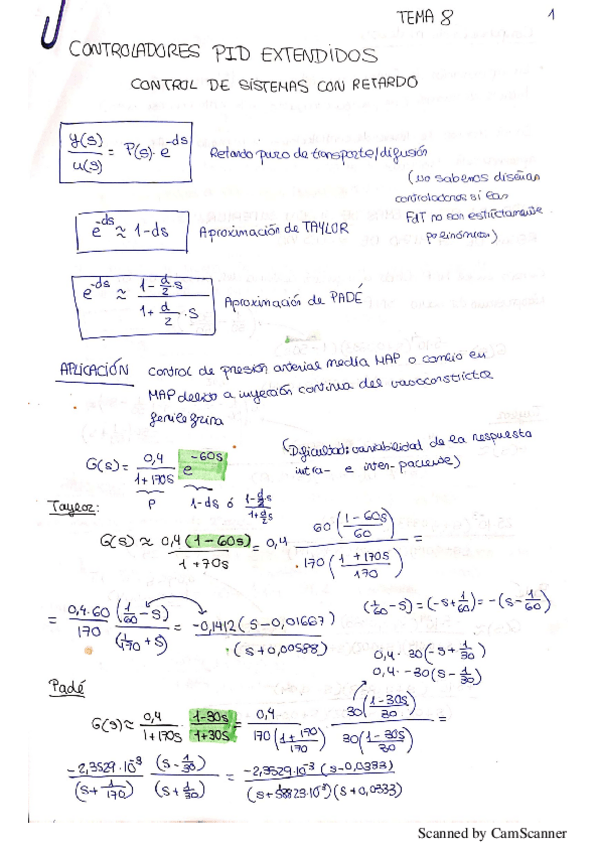 TEMA 8
1
CONTROLADORES PID EXTENDIDOS
CONTROL DE SISTEMAS CON RETARDO
y(s)/u(s) = P(s)· e^-ds
Retardo puro de transporte/difusión
(no sabemos diseñar
controladores si las
FdT no son estrictamente
polinómicas)
e^-ds ≈ 1-ds
Aproximación de TAYLOR
e^-ds ≈ (1 - d/2 s)/(1 + d/2 · s)
Aproximación de PADÉ
APLICACIÓN control de presión arterial media MAP o cambio en
MAP debido a inyección continua del vasoconstrictor
fenilefrina
(Dificultad: variabilidad de la respuesta
intra- e inter-paciente)
G(s) = 0,4/(1+170s) e^-60s
P 1-ds ó (1-d/2 s)/(1+d/2 s)
Taylor:
G(s) ≈ 0,4 (1-60s)/(1+70s) = 0,4 60((1-60s)/60)/·170((1+170s)/170) =
= 0,4·60/170 (1/60 - s)/(1/170 + s) = -0,1412(s-0,01667)/·(s+0,00588)
(1/60 - s) = (-s + 1/60) = -(s - 1/60)
0,4· 30(-s + 1/30)
0,4· -30(s - 1/30)
Padé
G(s) ≈ 0,4/(1+170s) · (1-30s)/(1+30s) = 0,4/170((1+170)/170) · 30((1-30s)/30)/30((1-30s)/30) =
-2,3529·10^-3/(s+1/170) (s-1/30)/(s+1/30) = -2,3529·10^-3 (s-0,0333)/(s+5,8829·10^-3)(s+0,0333)
Scanned by CamScanner